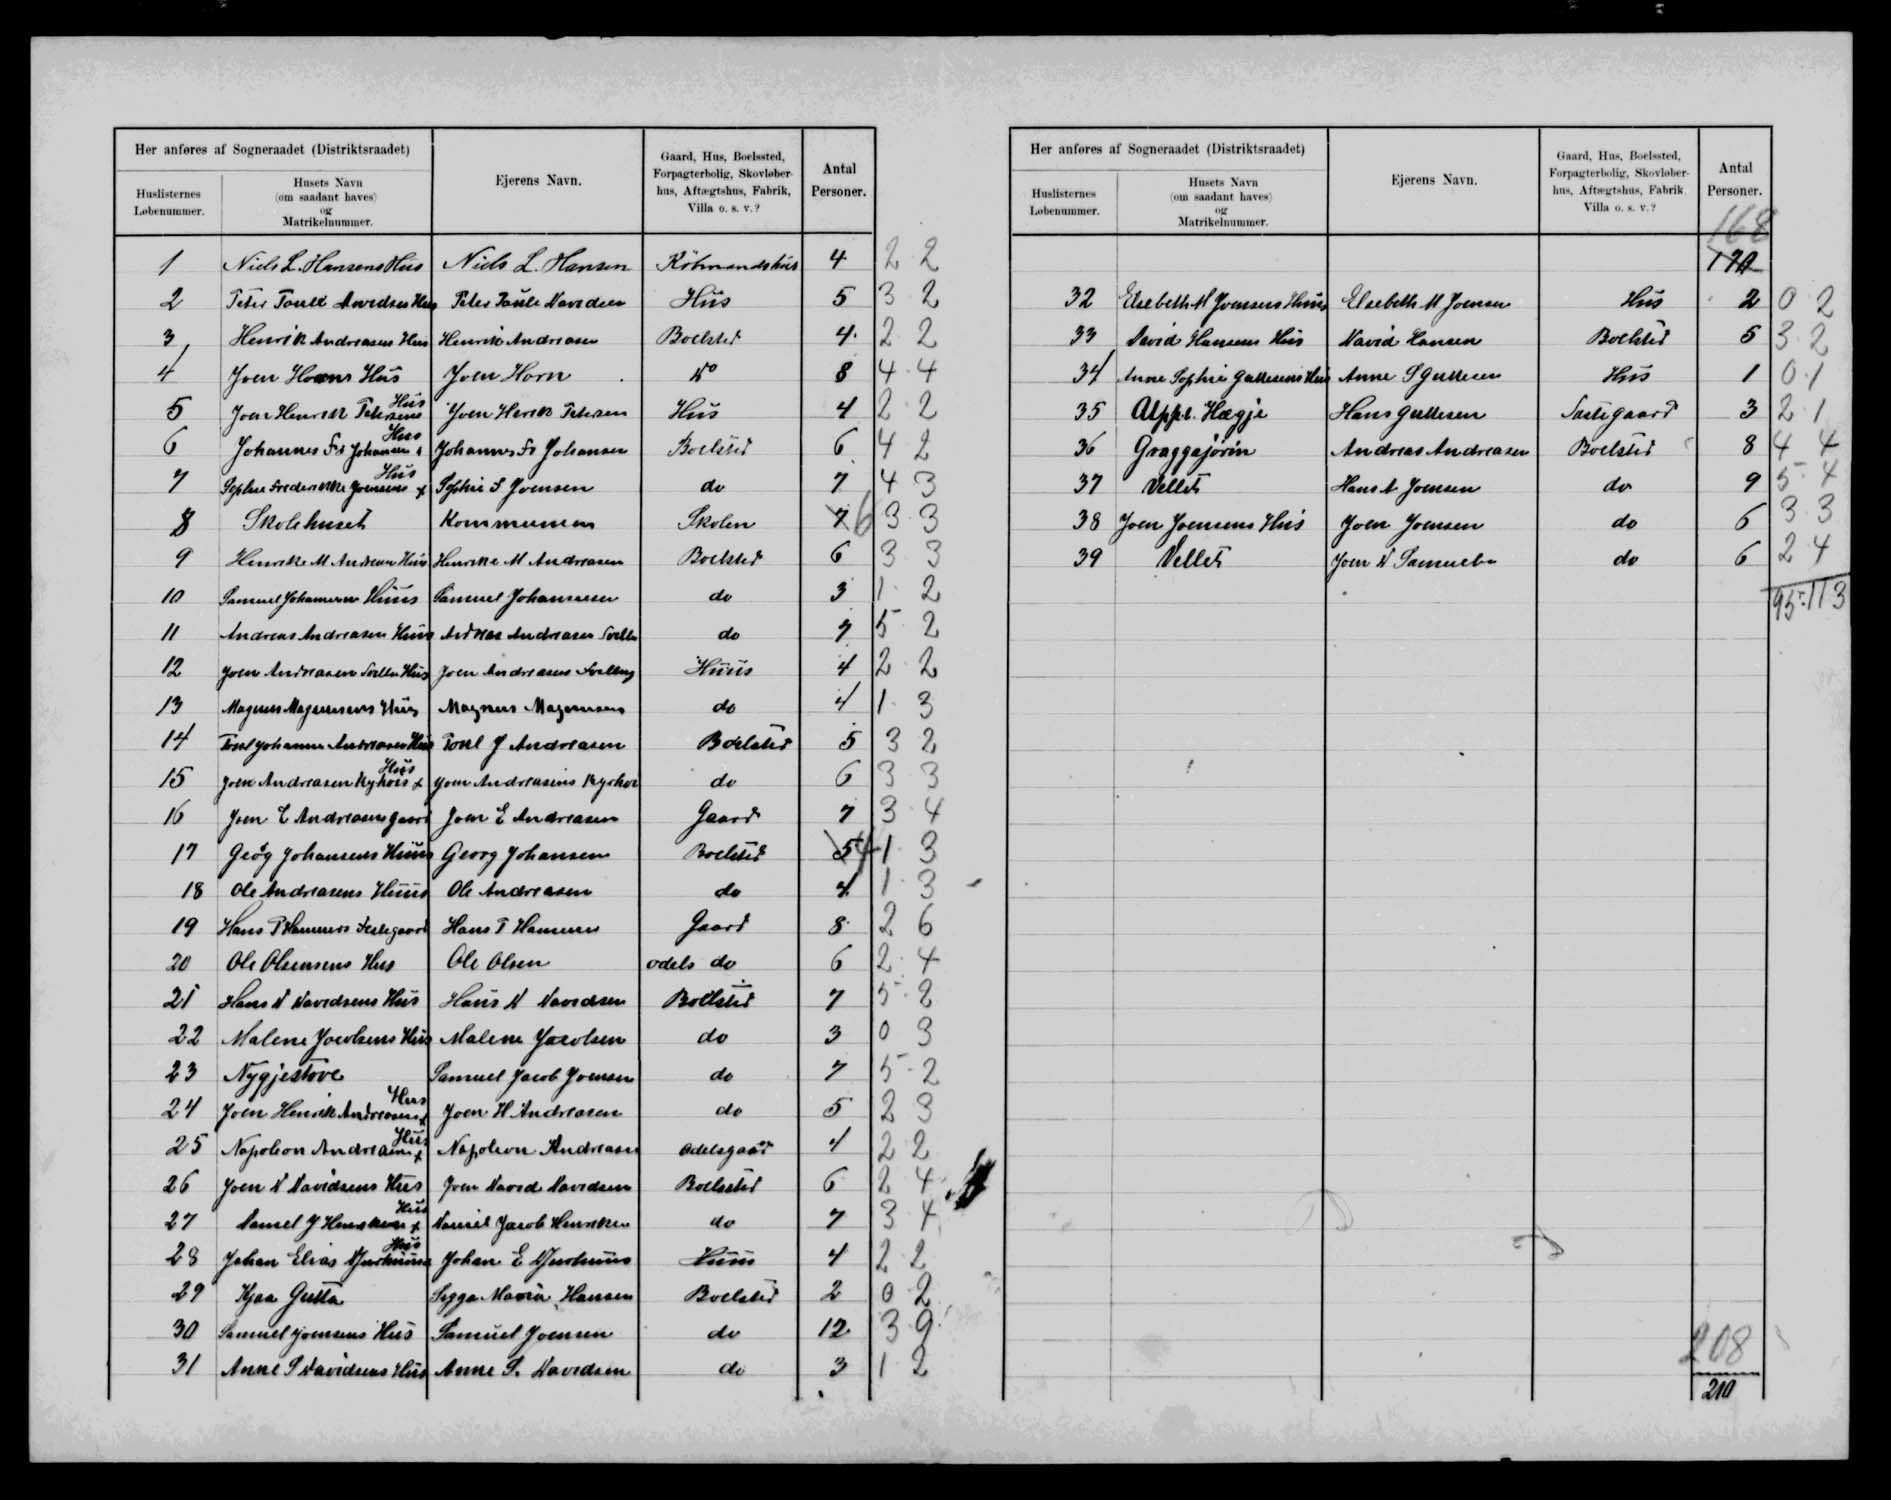 Her anføres af Sogneraadet (Distriktsraadet)
Huslisternes Løbenummer.
Husets Navn (om saadant haves) og Matrikelnummer.
Ejerens Navn.
Gaard, Hus, Boelssted, Forpagterbolig, Skovløber-hus, Aftægtshus, Fabrik, Villa o. s. v.?
Antal Personer.
1 Niels L. Hansens Hus Niels L. Hansen Købmandshus 4 2 2
2 Peter Poule Davidsen Hus Peter Poule Davidsen Hus 5 3 2
3 Henrik Andreasens Hus Henrik Andreasen Boelsted 4 2 2
4 Joen Horns Hus Joen Horn Do 8 4 4
5 Joen Henrik Petersens Hus Joen Henrik Petersen Hus 4 2 2
6 Johannes Fr Johansens Hus Johannes Fr Johansen Boelsted 6 4 2
7 Sophie Frederikke Joensens Hus Sophie F Joensen do 7 4 3
8 Skolehuset Kommunen Skolen 7 6 3 3
9 Henrikke M Andreasen Hus Henrikke M Andreasen Boelsted 6 3 3
10 Samuel Johannesens Huus Samuel Johannesen do 3 1 2
11 Andreas Andreasen Huus Andreas Andreasen do 7 5 2
12 Joen Andreasen Hus Joen Andreasen Huus 4 2 2
13 Magnus Magnussens Huus Magnus Magnussen do 4 1 3
14 Poul Johannes Andreasen Hus Poul J Andreasen Boelsted 5 3 2
15 Joen Andreasen Hus Joen Andreasens do 6 3 3
16 Joen E Andreasens Gaard Joen E Andreasen Gaard 7 3 4
17 Geog Johansens Huus Georg Johansen Boelsted 5 4 1 3
18 Ole Andreasens Huus Ole Andreasen do 4 1 3
19 Hans P Hansens Festegaard Hans P Hansen Gaard 8 2 6
20 Ole Olsensens Hus Ole Olsen odels do 6 2 4
21 Hans D Davidsens Hus Hans D Davidsen Boelsted 7 5 2
22 Malene Jacobsens Hus Malene Jacobsen do 3 0 3
23 Nygjestove Samuel Jacob Joensen do 7 5 2
24 Joen Henrik Andreasens Hus Joen H Andreasen do 5 2 3
25 Napoleon Andreasens Hus Napoleon Andreasen Odelsgaard 4 2 2
26 Joen D Davidsens Hus Joen David Davidsen Boelsted 6 2 4
27 Daniel J Henriksens Hus Daniel Jacob Henriksen do 7 3 4
28 Johan Elias Djurhuus Hus Johan E Djurhuus Huus 4 2 2
29 Kjaa Gutta Sigga Maria Hansen Boelsted 2 0 2
30 Samuel Joensens Hus Samuel Joensen do 12 3 9
31 Anne S Davidsens Hus Anne S. Davidsen do 3 1 2
Her anføres af Sogneraadet (Distriktsraadet)
Huslisternes Løbenummer.
Husets Navn (om saadant haves) og Matrikelnummer.
Ejerens Navn.
Gaard, Hus, Boelssted, Forpagterbolig, Skovløber-hus, Aftægtshus, Fabrik, Villa o. s. v.?
Antal Personer.
168
170
32 Elsebeth M Joensens Huus Elsebeth M Joensen Hus 2 0 2
33 David Hansens Hus David Hansen Boelsted 5 3 2
34 Anne Sophie Guttesens Hus Anne S Guttesen Hus 1 0 1
35 Hægje Hans Guttesen Festegaard 3 2 1
36 Graggajørin Andreas Andreasen Boelsted 8 4 4
37 Vellet Hans A Joensen do 9 5 4
38 Joen Joensens Hus Joen Joensen do 6 3 3
39 Vellet Joen D Samuelsen do 6 2 4
95 113
208
210